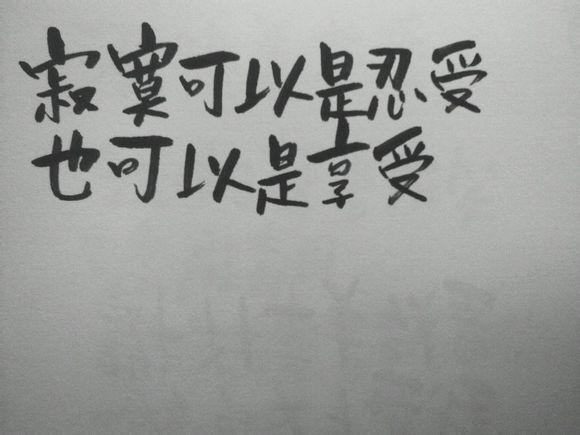 寂寞可以是忍受
也可以是享受